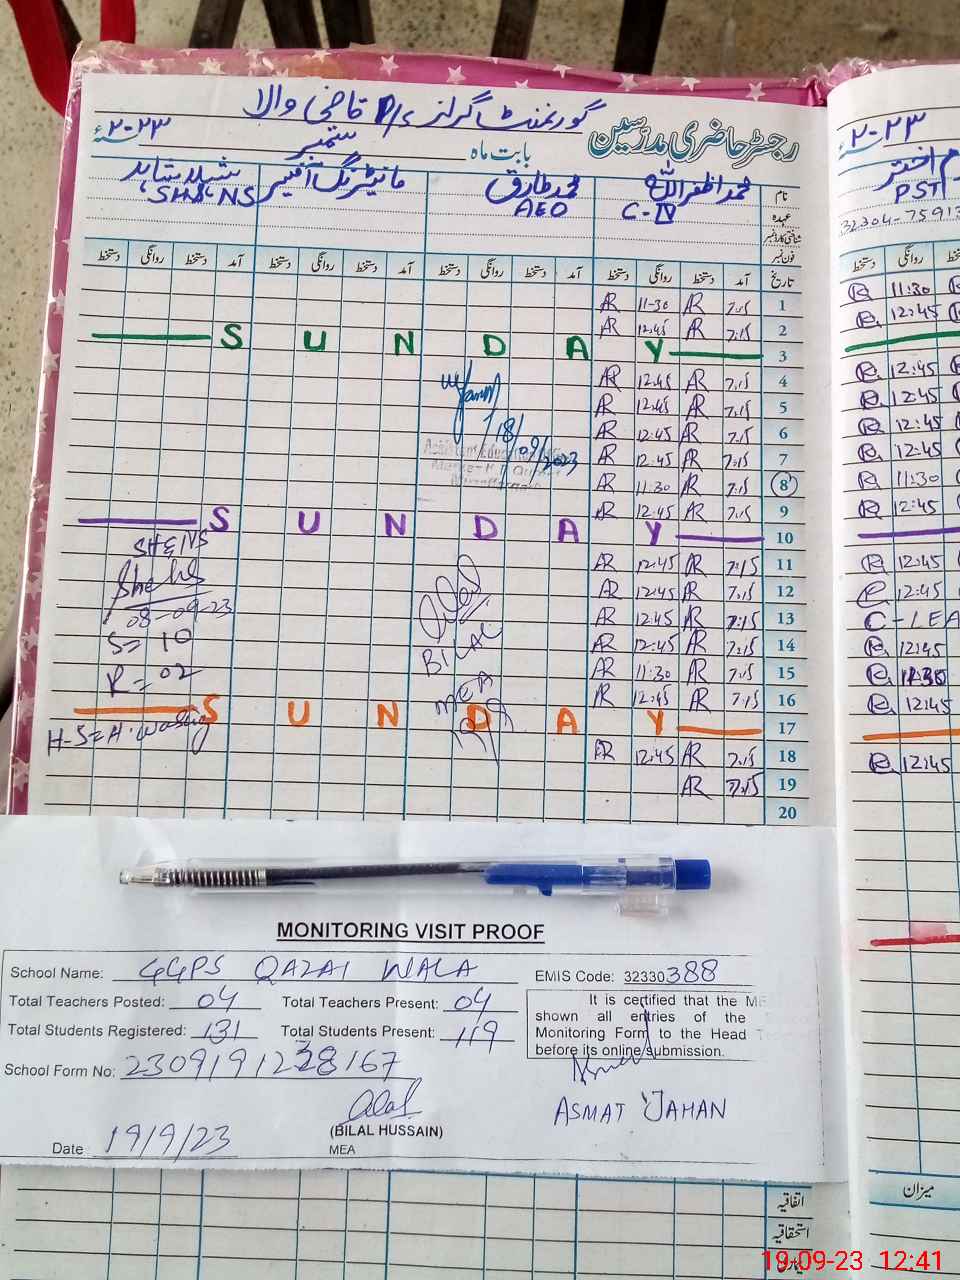 گورنمنٹ گرلز P/s قاضی والا
رجسٹر حاضری مدرسین
بابت ماہ ستمبر ۲۰۲۳ء
نام محمد اظفراللہ محمد طارق مانیٹرنگ آفیسر شہلا شاہد
عہدہ C-IV AEO SH&NS
شناختی کارڈ نمبر
فون نمبر
تاریخ آمد دستخط روانگی دستخط آمد دستخط روانگی دستخط آمد دستخط روانگی دستخط آمد دستخط روانگی دستخط
1 7:15 AR 11-30 AR
2 7:15 AR 12:45 AR
3 SUNDAY
4 7:15 AR 12:45 AR
5 7:15 AR 12:45 AR
6 7:15 AR 12:45 AR
7 7:15 AR 12:45 AR
8 7:15 AR 11:30 AR
9 7:15 AR 12:45 AR
10 SUNDAY
11 7:15 AR 12:45 AR
12 7:15 AR 12:45 AR
13 7:15 AR 12:45 AR
14 7:15 AR 12:45 AR
15 7:15 AR 11:30 AR
16 7:15 AR 12:45 AR
17 SUNDAY
18 7:15 AR 12:45 AR
19 7:15 AR
20
18/09/2023
Assistant Education
BILAL
MEA
SH&NS
08-09-23
S= 10
R= 02
H-S=H.washing
۲۰۲۳ء
اختر
PST
32304-7591
روانگی دستخط
11:30
12:45
12:45
12:45
12:45
12:45
11:30
12:45
12:45
12:45
C-LEA
12:45
11:30
12:45
12:45
MONITORING VISIT PROOF
School Name: GGPS QAZAI WALA EMIS Code: 32330388
Total Teachers Posted: 04 Total Teachers Present: 04
Total Students Registered: 131 Total Students Present: 119
It is certified that the ME
shown all entries of the
Monitoring Form to the Head T
before its online submission.
School Form No: 2309191238167
ASMAT JAHAN
(BILAL HUSSAIN)
MEA
Date 19/9/23
اتفاقیہ
استحقاقیہ
میزان
19-09-23 12:41